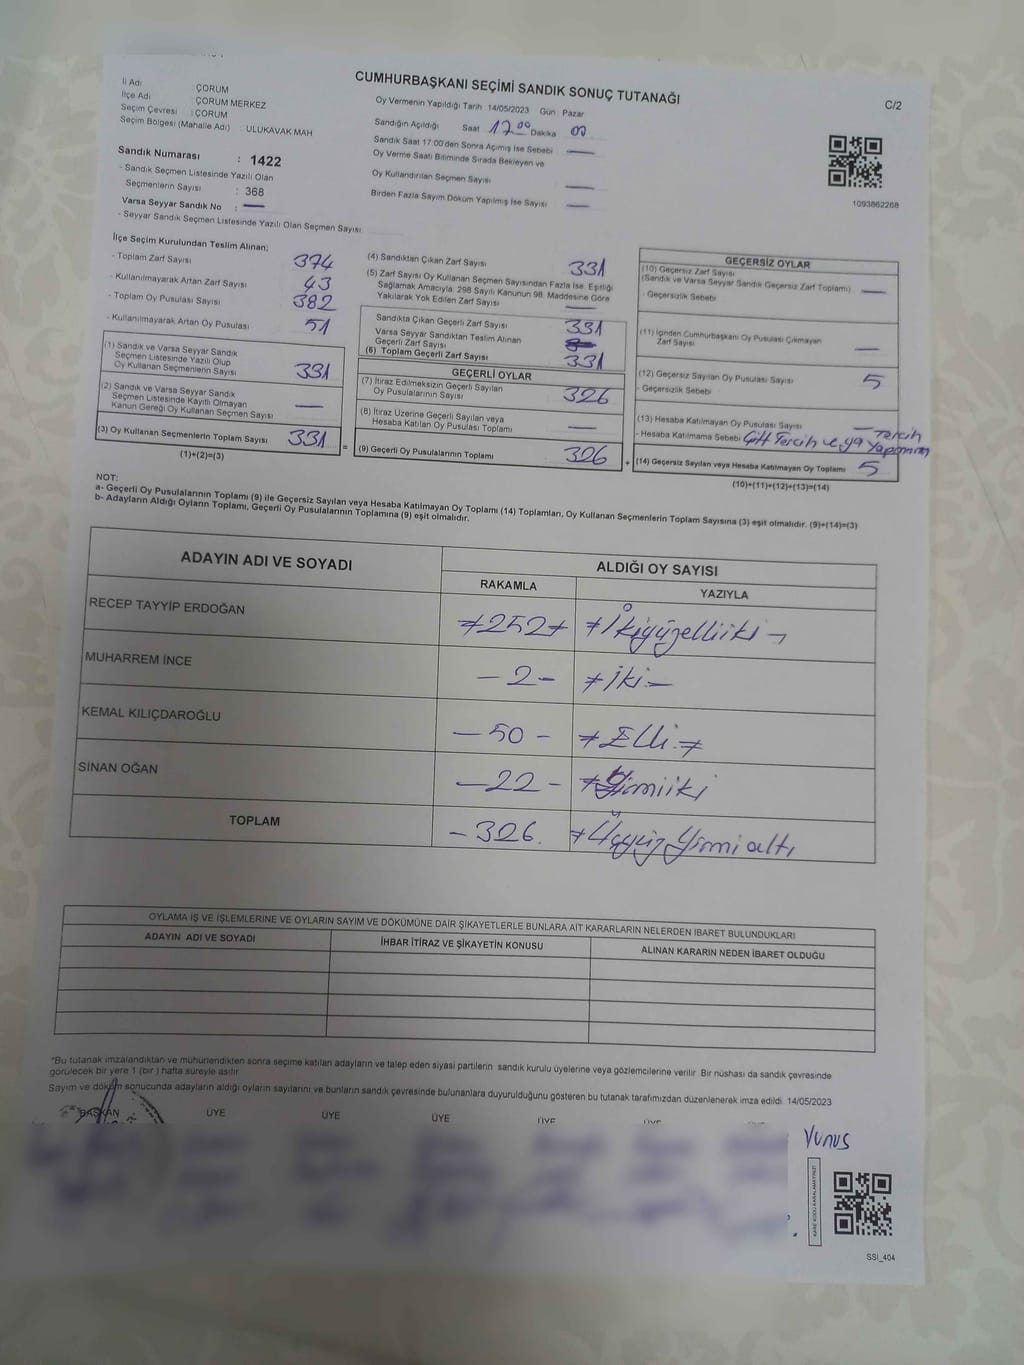 CUMHURBAŞKANI SEÇİMİ SANDIK SONUÇ TUTANAĞI
C/2
İl Adı : ÇORUM
İlçe Adı : ÇORUM MERKEZ
Seçim Çevresi : ÇORUM
Seçim Bölgesi (Mahalle Adı) : ULUKAVAK MAH
Sandık Numarası : 1422
- Sandık Seçmen Listesinde Yazılı Olan
Seçmenlerin Sayısı : 368
Varsa Seyyar Sandık No : —
- Seyyar Sandık Seçmen Listesinde Yazılı Olan Seçmen Sayısı:
Oy Vermenin Yapıldığı Tarih : 14/05/2023 Gün : Pazar
Sandığın Açıldığı Saat 17.00 Dakika 00
Sandık Saat 17:00'den Sonra Açılmış İse Sebebi —
Oy Verme Saati Bitiminde Sırada Bekleyen ve
Oy Kullandırılan Seçmen Sayısı —
Birden Fazla Sayım Döküm Yapılmış İse Sayısı —
1093862268
İlçe Seçim Kurulundan Teslim Alınan;
- Toplam Zarf Sayısı 374
- Kullanılmayarak Artan Zarf Sayısı 43
- Toplam Oy Pusulası Sayısı 382
- Kullanılmayarak Artan Oy Pusulası 51
(1) Sandık ve Varsa Seyyar Sandık
Seçmen Listesinde Yazılı Olup
Oy Kullanan Seçmenlerin Sayısı 331
(2) Sandık ve Varsa Seyyar Sandık
Seçmen Listesinde Kayıtlı Olmayan
Kanun Gereği Oy Kullanan Seçmen Sayısı —
(3) Oy Kullanan Seçmenlerin Toplam Sayısı 331 =
(1)+(2)=(3)
(4) Sandıktan Çıkan Zarf Sayısı 331
(5) Zarf Sayısı Oy Kullanan Seçmen Sayısından Fazla İse, Eşitliği
Sağlamak Amacıyla; 298 Sayılı Kanunun 98. Maddesine Göre
Yakılarak Yok Edilen Zarf Sayısı —
Sandıkta Çıkan Geçerli Zarf Sayısı 331
Varsa Seyyar Sandıktan Teslim Alınan
Geçerli Zarf Sayısı
(6) Toplam Geçerli Zarf Sayısı 331
GEÇERLİ OYLAR
(7) İtiraz Edilmeksizin Geçerli Sayılan
Oy Pusulalarının Sayısı 326
(8) İtiraz Üzerine Geçerli Sayılan veya
Hesaba Katılan Oy Pusulası Toplamı —
(9) Geçerli Oy Pusulalarının Toplamı 326 +
GEÇERSİZ OYLAR
(10) Geçersiz Zarf Sayısı
(Sandık ve Varsa Seyyar Sandık Geçersiz Zarf Toplamı) —
- Geçersizlik Sebebi
(11) İçinden Cumhurbaşkanı Oy Pusulası Çıkmayan
Zarf Sayısı —
(12) Geçersiz Sayılan Oy Pusulası Sayısı 5
- Geçersizlik Sebebi
(13) Hesaba Katılmayan Oy Pusulası Sayısı —
- Hesaba Katılmama Sebebi Çift Tercih veya Tercih
(14) Geçersiz Sayılan veya Hesaba Katılmayan Oy Toplamı 5
(10)+(11)+(12)+(13)=(14)
NOT:
a- Geçerli Oy Pusulalarının Toplamı (9) ile Geçersiz Sayılan veya Hesaba Katılmayan Oy Toplamı (14) Toplamları, Oy Kullanan Seçmenlerin Toplam Sayısına (3) eşit olmalıdır. (9)+(14)=(3)
b- Adayların Aldığı Oyların Toplamı, Geçerli Oy Pusulalarının Toplamına (9) eşit olmalıdır.
ADAYIN ADI VE SOYADI
ALDIĞI OY SAYISI
RAKAMLA YAZIYLA
RECEP TAYYİP ERDOĞAN 252 İkiyüzelliiki
MUHARREM İNCE - 2 - İki
KEMAL KILIÇDAROĞLU - 50 - Elli
SİNAN OĞAN - 22 - Yirmiiki
TOPLAM - 326. Üçyüz Yirmi altı
OYLAMA İŞ VE İŞLEMLERİNE VE OYLARIN SAYIM VE DÖKÜMÜNE DAİR ŞİKAYETLERLE BUNLARA AİT KARARLARIN NELERDEN İBARET BULUNDUKLARI
ADAYIN ADI VE SOYADI İHBAR İTİRAZ VE ŞİKAYETİN KONUSU ALINAN KARARIN NEDEN İBARET OLDUĞU
*Bu tutanak imzalandıktan ve mühürlendikten sonra seçime katılan adayların ve talep eden siyasi partilerin sandık kurulu üyelerine veya gözlemcilerine verilir. Bir nüshası da sandık çevresinde
görülecek bir yere 1 (bir) hafta süreyle asılır.
Sayım ve döküm sonucunda adayların aldığı oyların sayılarını ve bunların sandık çevresinde bulunanlara duyurulduğunu gösteren bu tutanak tarafımızdan düzenlenerek imza edildi. 14/05/2023
BAŞKAN ÜYE ÜYE ÜYE ÜYE ÜYE
Yunus
SSI_404